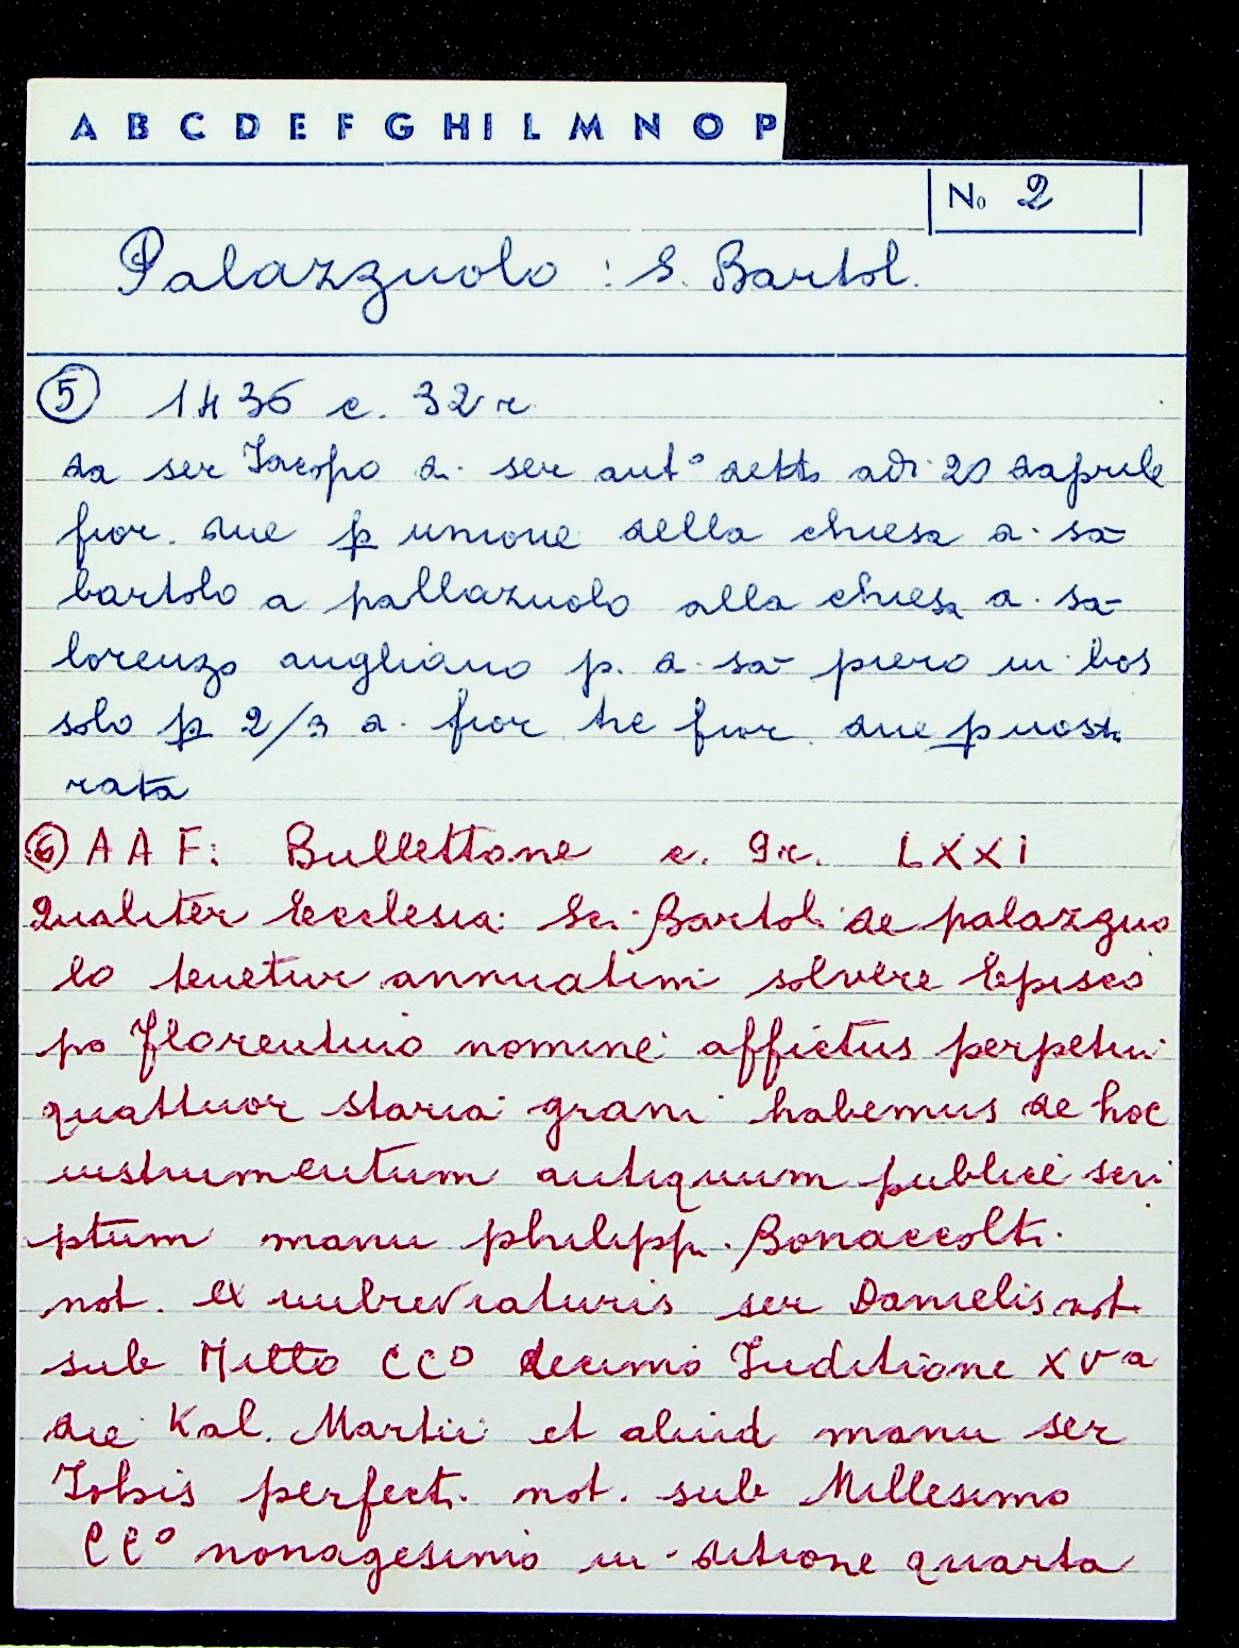 A B C D E F G H I L M N O P
No 2
Palazzuolo : S. Bartol.
5 1436 c. 32 r
da ser Iacopo di ser ant° detto adi 20 daprile
fior. due p unione della chiesa di sā
bartolo a pallazuolo alla chiesa di sā
lorenzo angliano p. di sā piero in bos
solo p 2/3 di fior tre fior. due p nostra
rata
6 A A F: Bullettone c. 9 r. LXXI
Qualiter Ecclesia Sci. Bartoli de palazzuo
lo tenetur annuatim solvere Episco
po Florentino nomine affictus perpetui
quattuor staria grani habemus de hoc
instrumentum antiquum publice scri
ptum manu philippi Bonaccolti
not. ex imbreviaturis ser Danielis not.
sub Mille CC° decimo Inditione XVª
die Kal. Martii et aliud manu ser
Iohis perfecti not. sub Millesimo
CC° nonagesimo in-ditione quarta